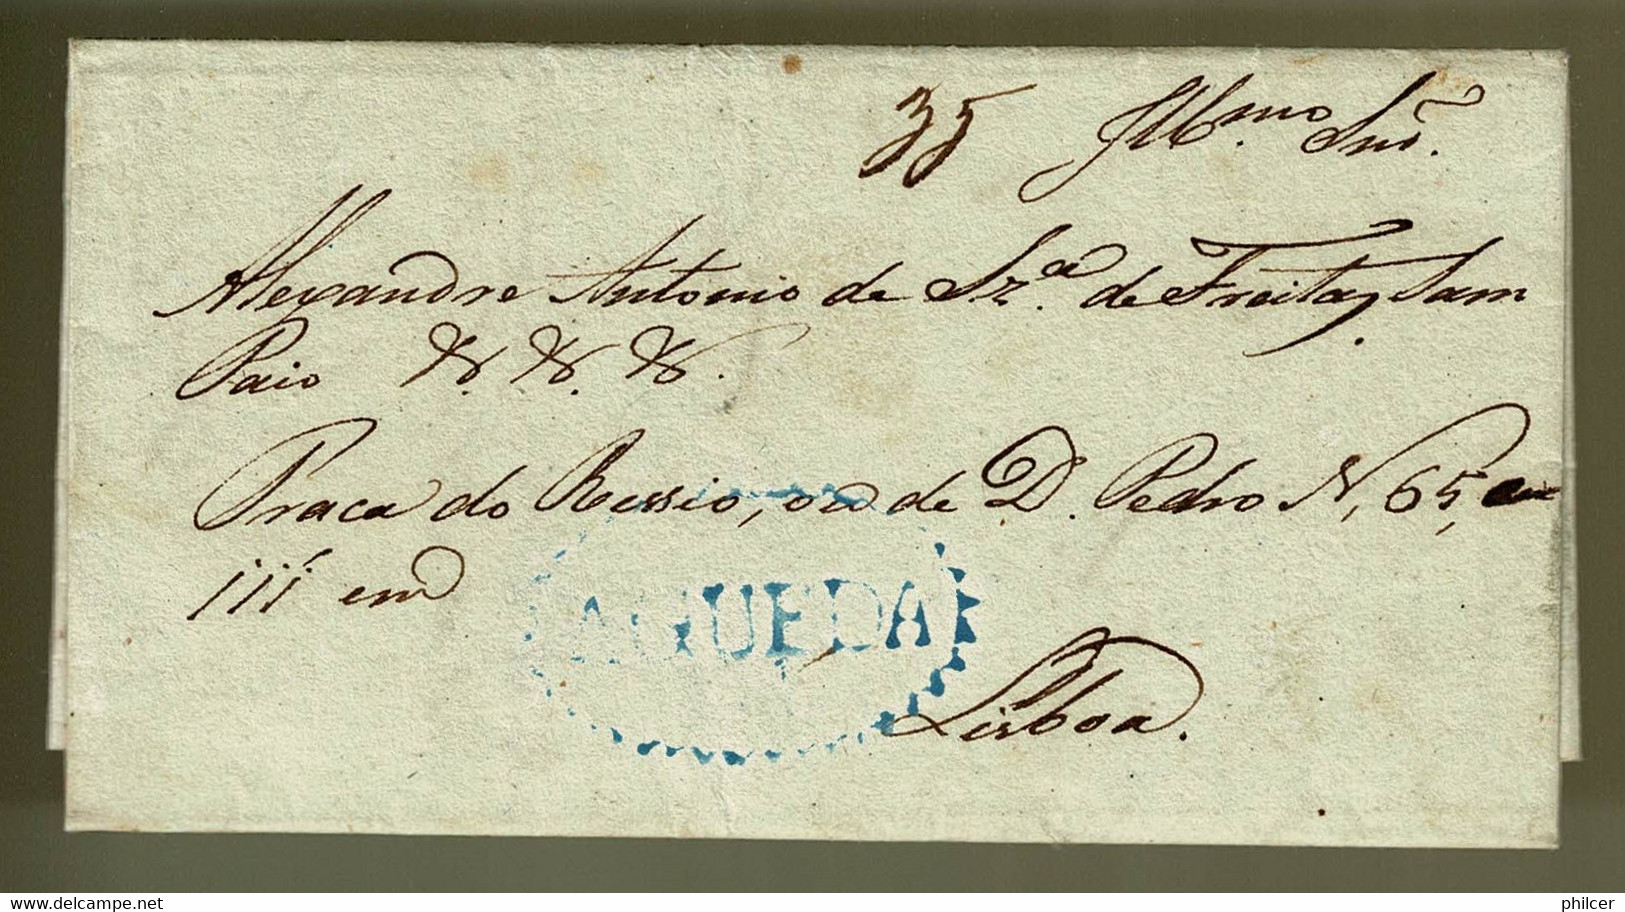 35 Illmo. Snr.
Alexandre Antonio de Sza. de Freitas Sam
Paio &. &. &.
Praca do Ressio, ou de D. Pedro N, 65,
em
AGUEDA
Lisboa.
www.delcampe.net
philcer